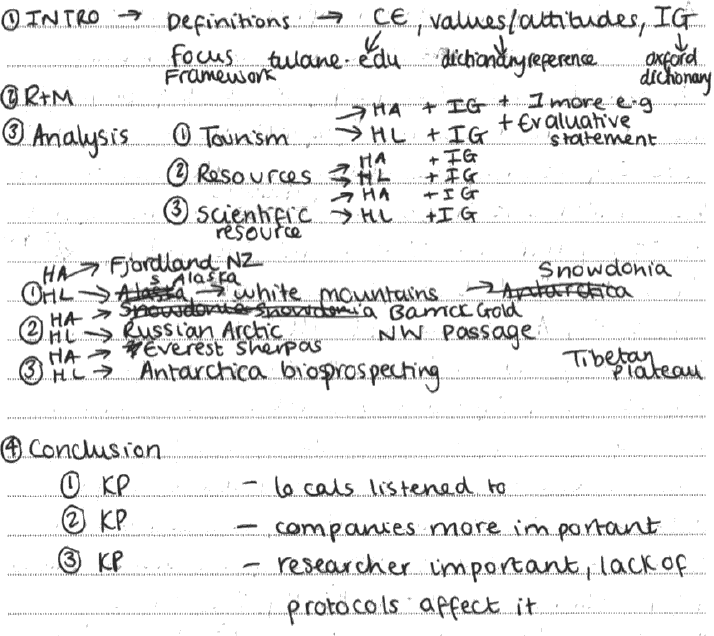 ① INTRO → Definitions → CE, values/attitudes, IG
Focus tulane.edu dictionaryreference oxford
Framework dictionary
② R+M
③ Analysis ① Tourism → HA + IG + 1 more e.g
→ HL + IG + Evaluative statement
② Resources → HA + IG
→ HL + IG
③ Scientific resource → HA + IG
→ HL + IG
HA → Fjordland NZ
① HL → Alaska → white mountains → Antarctica Snowdonia
s Alaska
② HA → Snowdonia Snowdonia Barrick Gold
HL → Russian Arctic NW Passage
③ HA → Everest Sherpas
HL → Antarctica bioprospecting Tibetan Plateau
④ Conclusion
① KP - locals listened to
② KP - companies more important
③ KP - researcher important, lack of
protocols affect it